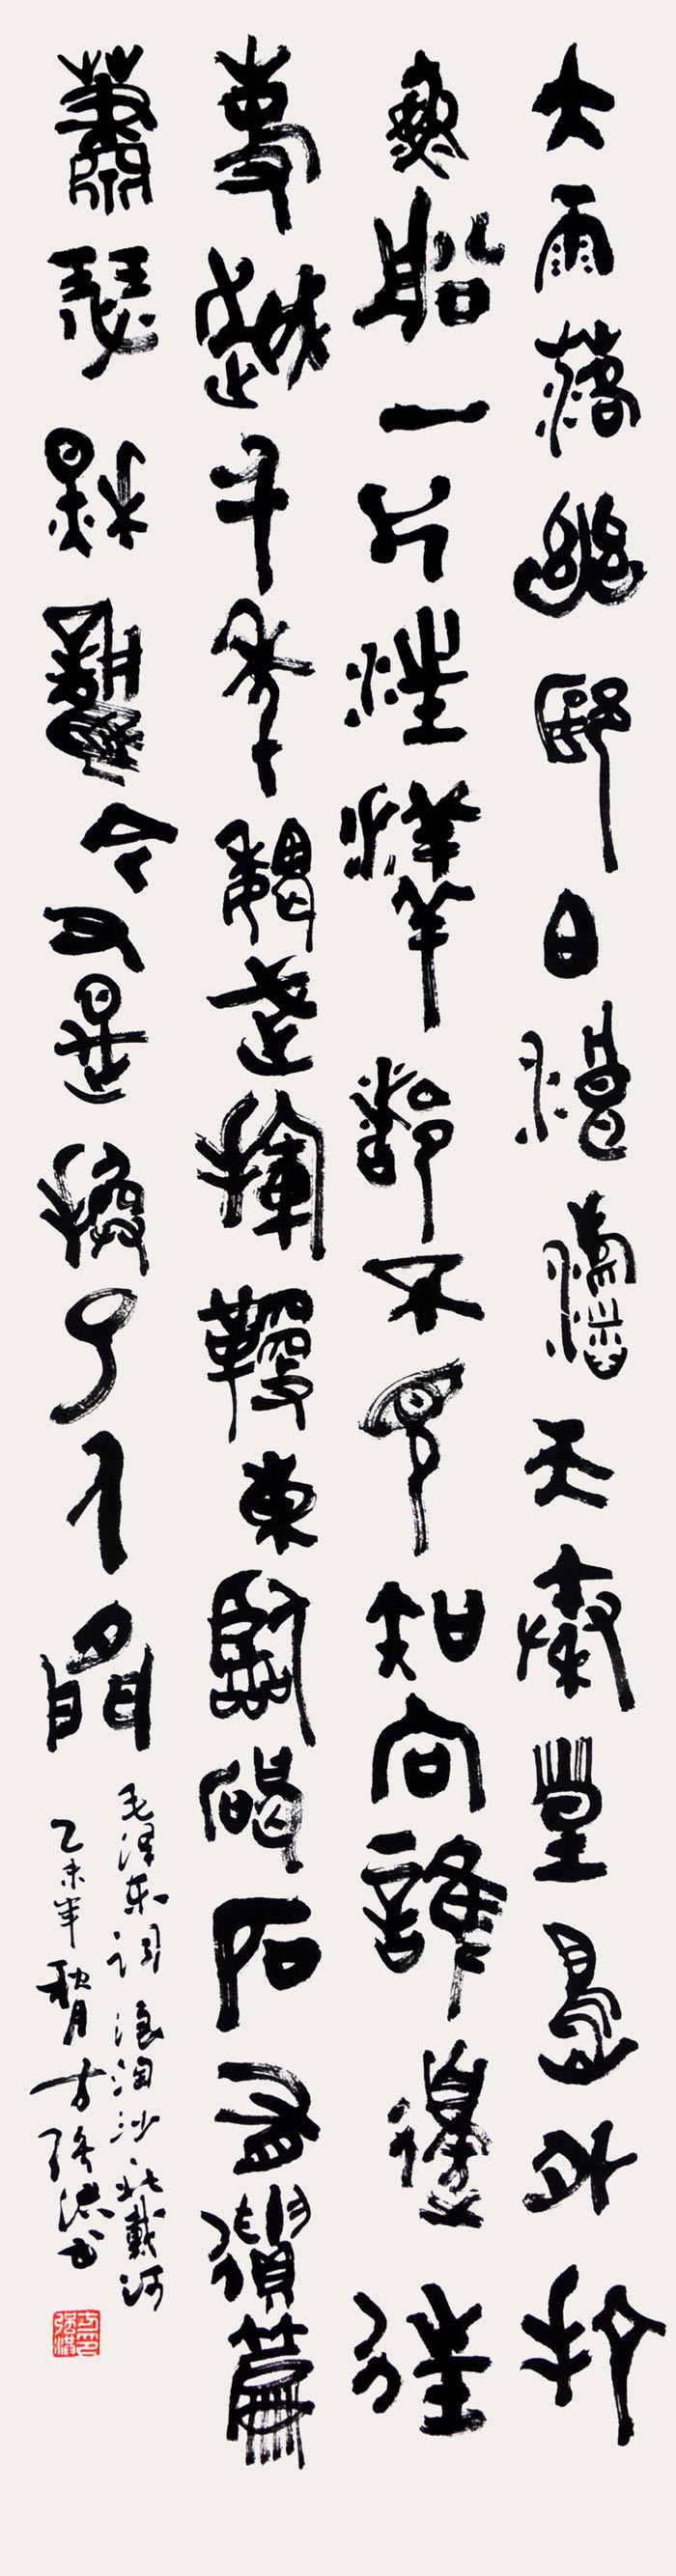 大雨落幽郾白浪滔天秦皇島外打
魚船一片汪洋都不見知向誰邊往
事越千年魏武揮鞭東臨碣石有遺篇
蕭瑟秋風今又是換了人間
毛泽东词浪淘沙北戴河
乙未年秋月方书